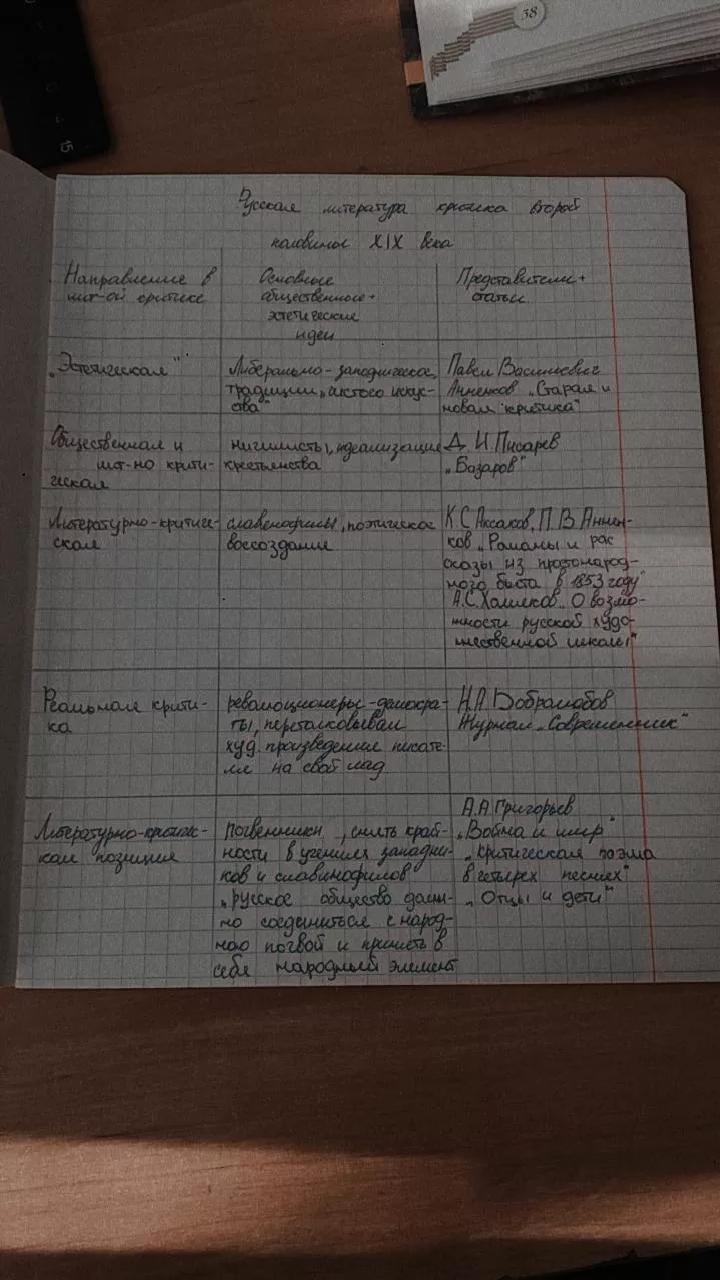 38
15
Русская литература критика второй
половины XIX века
Направление в
лит-ой критике
Основные
общественные +
эстетические
идеи
Представители +
статьи
„Эстетическая"
Либерально-западническое,
традиции „чистого искус-
ства"
Павел Васильевич
Анненков „Старая и
новая критика"
Общественная и
лит-но крити-
ческая
нигилисты, идеализация
крестьянства
Д. И. Писарев
„Базаров"
Литературно-критиче-
ская
славенофилы, поэтическое
воссоздание
К С Аксаков, П. В Аннен-
ков „Романы и рас
сказы из простонарод-
ного быта в 1853 году"
А.С. Хомяков „О возмо-
жности русской худо-
жественной школы"
Реальная крити-
ка
революционеры-демокра-
ты, перетолковывал
худ. произведение писате-
ля на свой лад
Н.А Добролюбов
Журнал „Современник"
Литературно-критичес-
кая позиция
почвенники, снять край-
ности в учениях западни-
ков и славинофилов
„русское общество долж-
но соединиться с народ-
ною почвой и принять в
себя народный элемент
А.А Григорьев
„Война и мир"
„Критическая поэма
в четырех песнях"
„Отцы и дети"